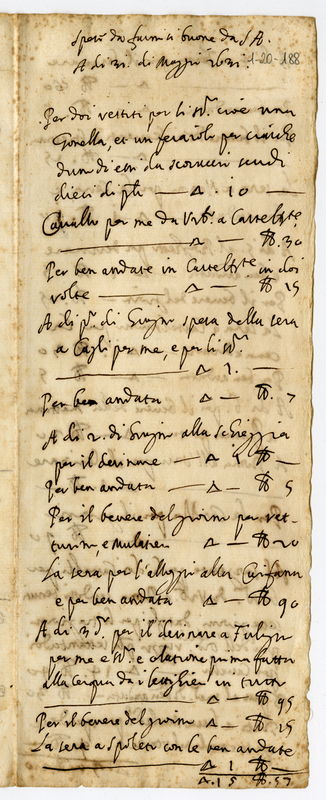 Spese da farmisi buone da S A.
A di 31. di Maggio 1631.
1-20-188
Per doi vestiti per li sri. cioè una
Gonella, et un feraiolo per ciasche
duno di essi da scudi
dieci di pli — Δ . 10 —
Cavallo per me da Urbo. a
— Δ — ₶. 30
Per ben andate in in doi
volte — Δ — ₶ 15
A di po. di Giugno spesa della sera
a Cagli per me, e per li sri.
— Δ 1. —
Per ben andata Δ — ₶. 7
A di 2. di Giugno alla scheggia
per il desinare — Δ 1 ₶ —
Per ben andata — Δ — ₶ 5
Per il bevere del giorno per vet-
turini, e Mulatieri Δ — ₶ 20
La sera per l'alloggio alla
e per ben andata Δ — ₶ 90
A di 3 do. per il desinare a Fuligni
per me e sri. e colatione prima fatta
alla in tutto
— Δ — ₶ 95
Per il bevere del giorno Δ — ₶ 15
La sera a Spoleti con le ben andate
— Δ 1 ₶ —
Δ. 15 ₶. 57